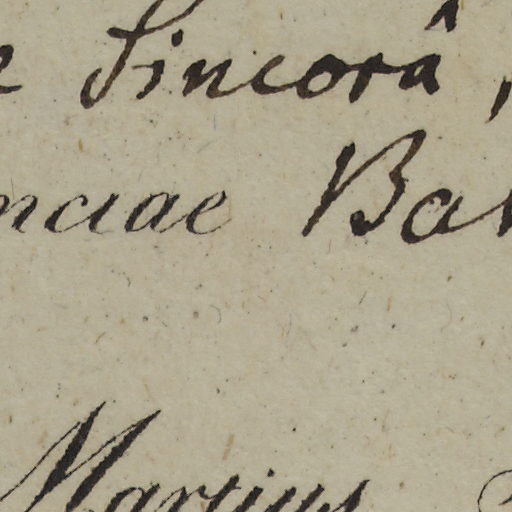 e Sincorâ,
nciae Bah
Martius